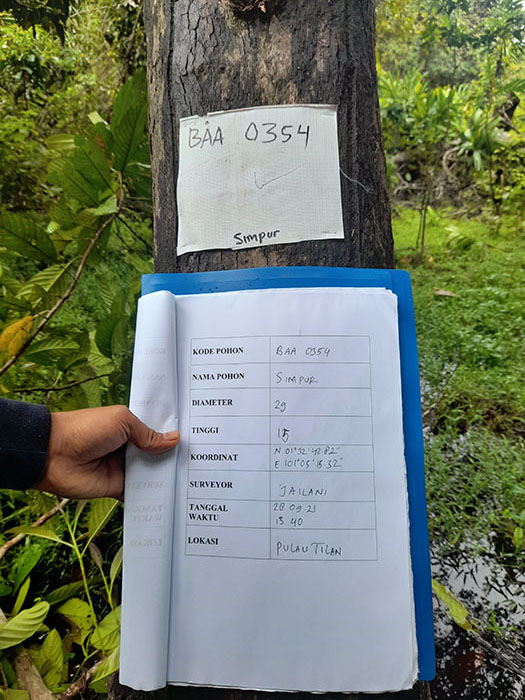 BAA 0354
Simpur
KODE POHON BAA 0354
NAMA POHON SIMPUR
DIAMETER 29
TINGGI 15
KOORDINAT N 01°32'42.82"
E 101°05'18.32"
SURVEYOR JAILANI
TANGGAL 28 09 21
WAKTU 15 40
LOKASI PULAU TILAN